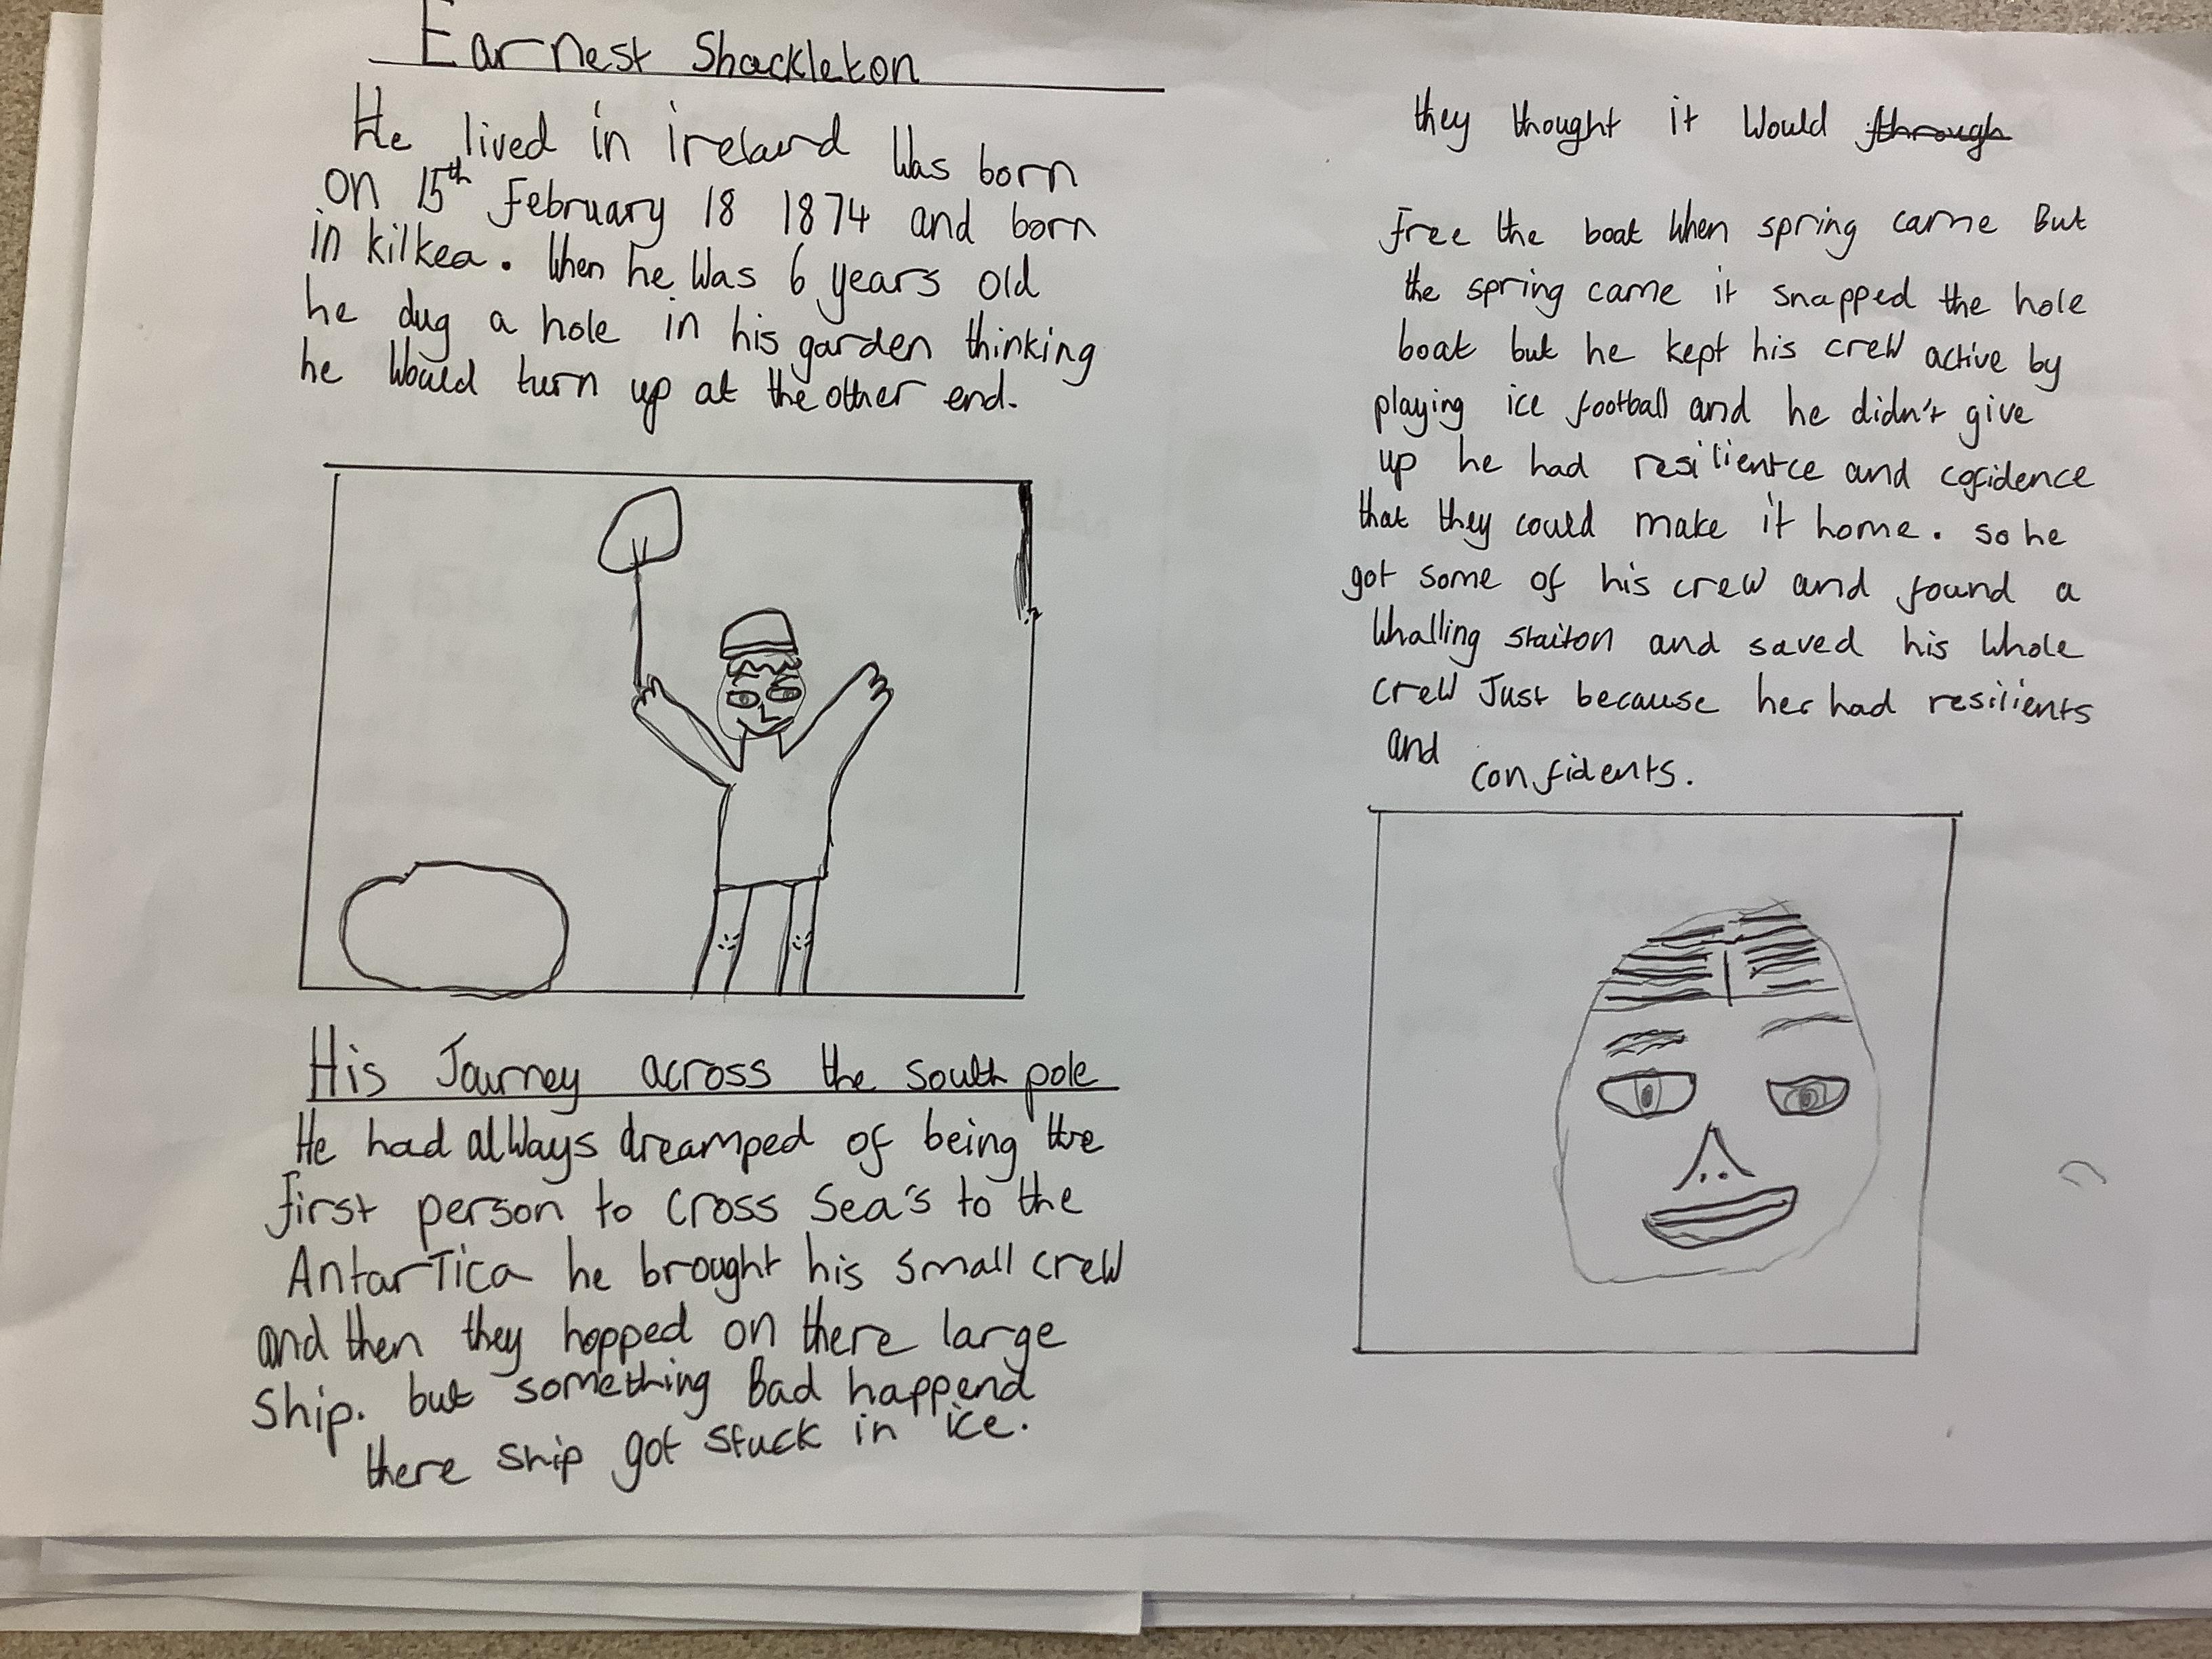 Earnest Shackleton
He lived in ireland Was born
on 15th February 18 1874 and born
in kilkea. When he Was 6 years old
he dug a hole in his garden thinking
he Would turn up at the other end.
His Journey across the south pole
He had always dreamped of being the
first person to cross Sea's to the
AntarTica he brought his small crew
and then they hopped on there large
Ship. but something Bad happend
there ship got stuck in ice.
they thought it Would through
free the boat When spring came But
the spring came it snapped the hole
boat but he kept his crew active by
playing ice football and he didn't give
up he had resilientce and cofidence
that they could make it home. so he
got some of his crew and found a
Whalling staiton and saved his Whole
crew Just because her had resilients
and confidents.